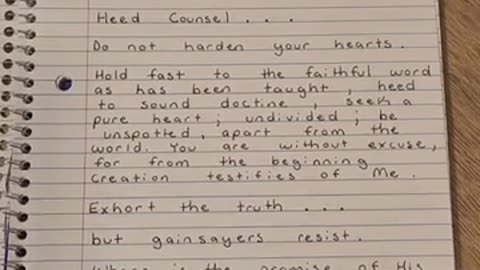 Heed Counsel . . .
Do not harden your hearts.
Hold fast to the faithful word
as has been taught, heed
to sound doctine, seek a
pure heart; undivided; be
unspotted, apart from the
world. You are without excuse,
for from the beginning
creation testifies of Me.
Exhort the truth . . .
but gainsayers resist.
Where is the promise of His